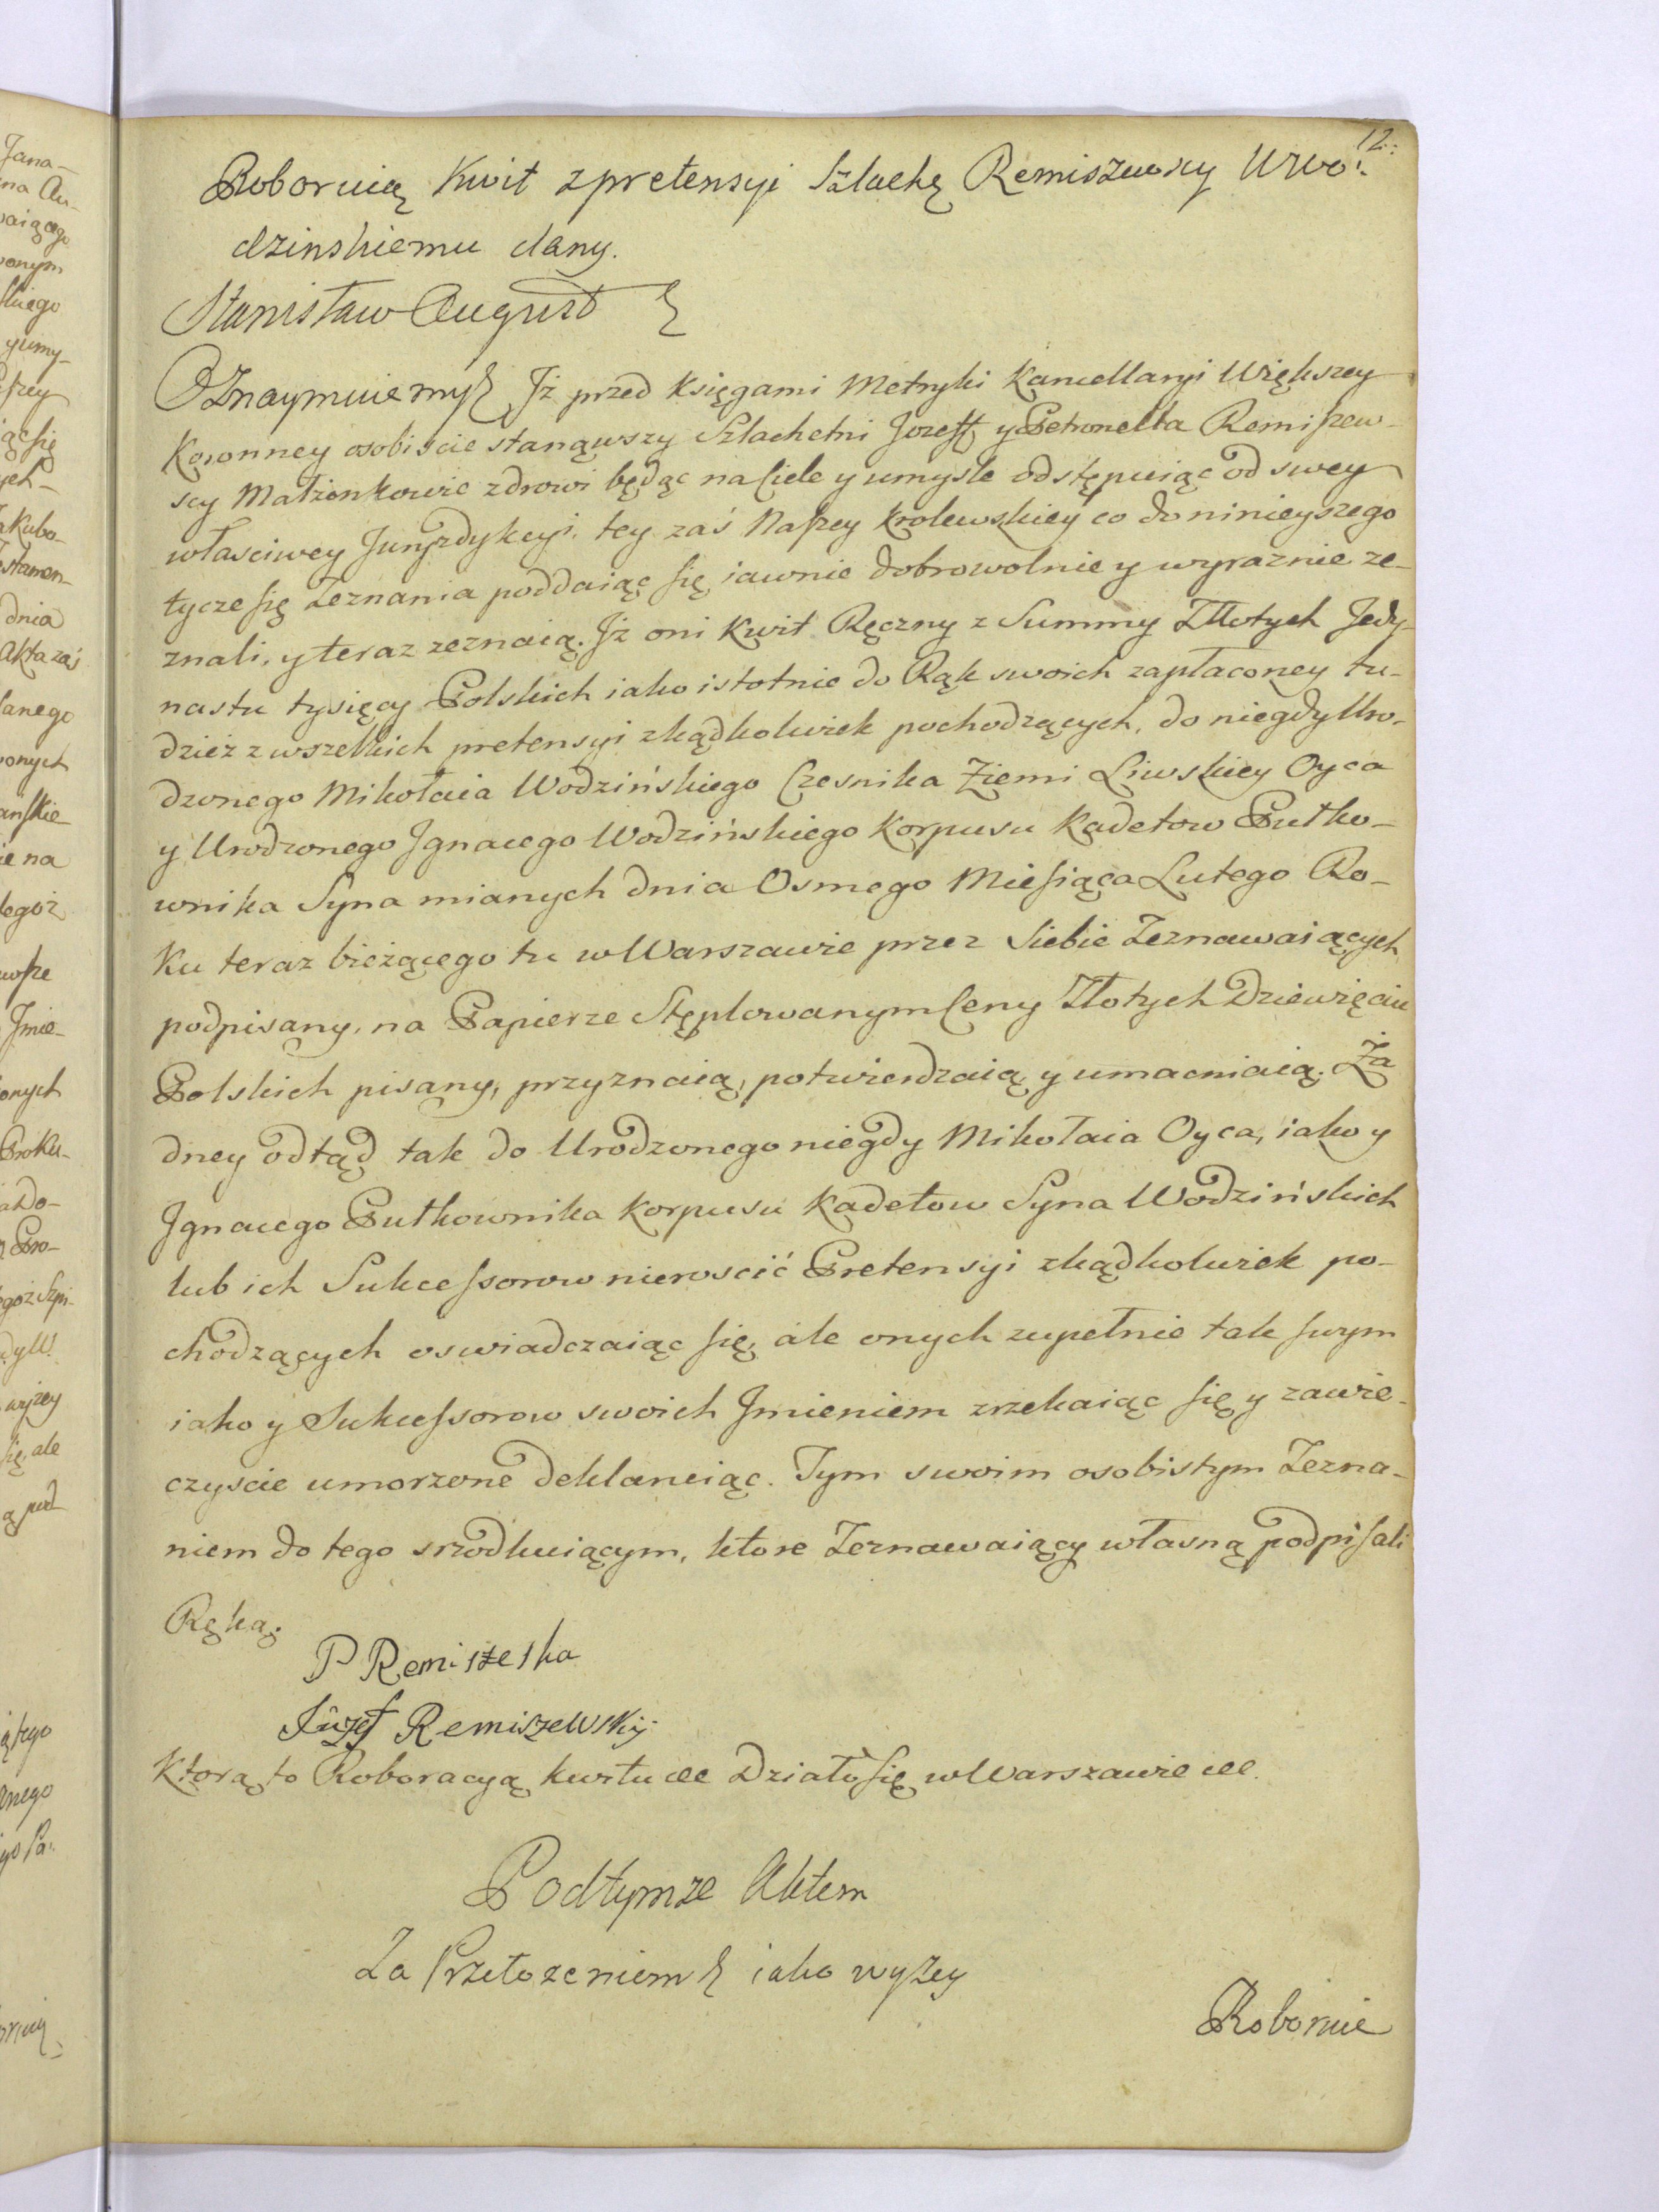 12.
Roboruią Kwit z pretensyi Szlachę Remiszewscy Urwo:
dzinskiemu dany.
Stanisław August
Oznaymuiemy Jż przed Księgami Metryki Kancellaryi Większey
Koronney osobiscie stanąwszy Szlachetni Jozeff y Petronella Remiszew-
scy Małżonkowie zdrowi będąc na Ciele y umysle odstępuiąc od swey
własciwey Juryzdykcyi, tey zaś Naszey Krolewskiey co do ninieyszego
tycze się Zeznania poddaiąc się, iawnie dobrowolnie y wyraznie ze-
znali, y teraz zeznaią. Jż oni Kwit Ręczny z Summy Złłotych Jedy-
nastu tysięcy Polskich iako istotnie do Rąk swoich zapłaconey tu-
dzież z wszelkich pretensyi zkądkolwiek pochodzących, do niegdy Uro-
dzonego Mikołaia Wodzińskiego Czesnika Ziemi Liwskiey Oyca
y Urodzonego Jgnacego Wodzińskiego Korpusu Kadetow Pułko-
wnika Syna mianych dnia Osmego Miesiąca Lutego Ro-
ku teraz bieżącego tu w Warszawie przez Siebie Zeznawaiących
podpisany, na Papierze Stęplowanym Ceny Złotych Dziewięciu
Polskich pisany, przyznaią, potwierdzaią y umacniaią. Ża
dney odtąd tak do Urodzonego niegdy Mikołaia Oyca, iako y
Jgnacego Pułkownika Korpusu Kadetow Syna Wodzińskich
lub ich Sukcessorow nieroscić Pretensyi zkądkolwiek po-
chodzących oswiadczaiąc się, ale onych zupełnie tak swym
iako y Sukcessorow swoich Jmieniem zrzekaiąc się y zawie-
czyscie umorzone deklaruiąc. Tym swoim osobistym Zezna-
niem do tego srzodkuiącym, ktore Zeznawaiący własną podpisali
Ręką.
P Remiszeska
Józef Remiszewskij
Ktorą to Roboracyą kwitu etc Działo się w Warszawie etc.
Podtymze Aktem
Za Przełozeniem iako wyzey
Roboruie